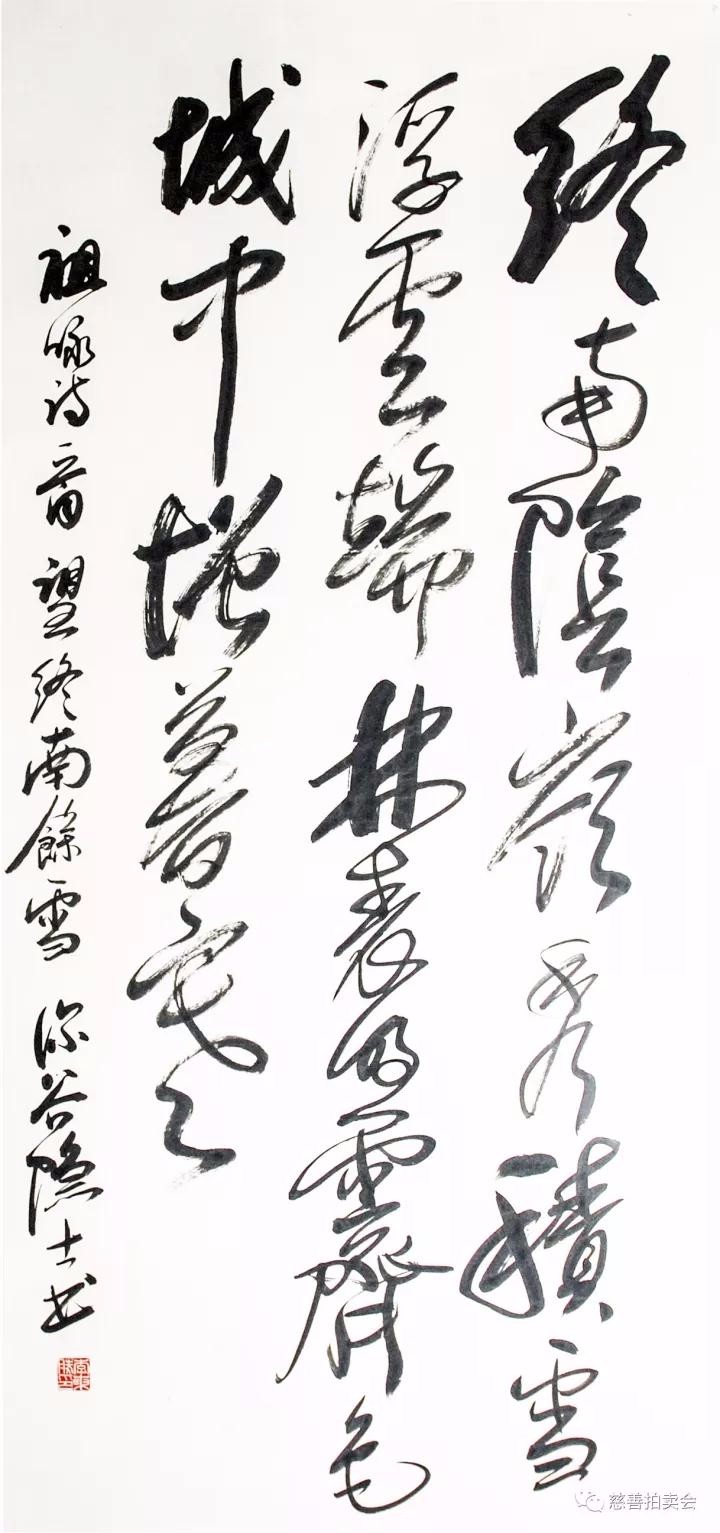 終南陰嶺秀積雪
浮雲端林表明霽色
城中增暮寒
祖咏诗一首望終南餘雪 深谷隐士书
慈善拍卖会